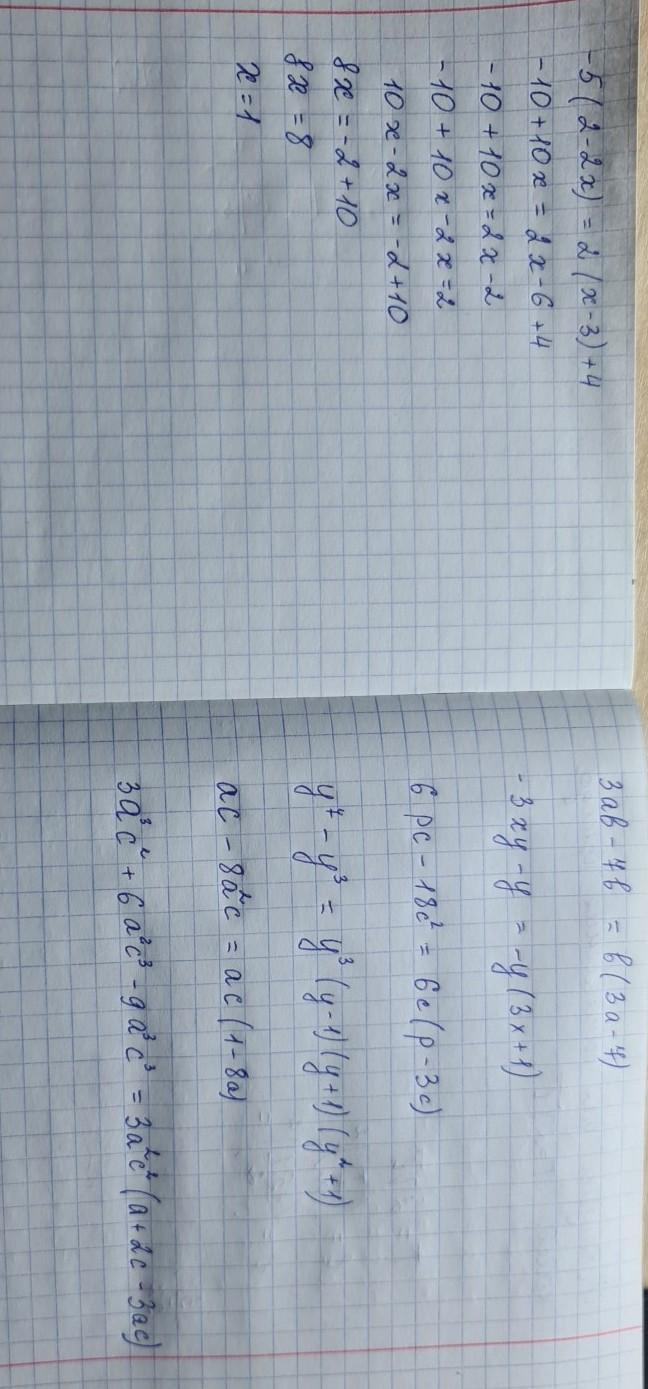 -5(2-2x) = 2(x-3)+4
-10+10x = 2x-6+4
-10+10x=2x-2
-10+10x-2x=2
10x-2x=-2+10
8x=-2+10
8x=8
x=1
3ab-4b = b(3a-4)
-3xy-y = -y(3x+1)
6pc-18c² = 6c(p-3c)
y⁷-y³ = y³(y-1)(y+1)(y²+1)
ac-8a²c = ac(1-8a)
3a³c²+6a²c³-9a³c³ = 3a²c²(a+2c-3ac)